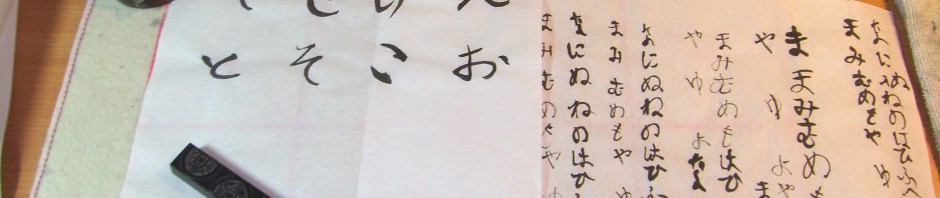 なにぬねのはひふへ
まみむめもや ゆ
ままみむめ
や ゆ よ
まみむめもはひ
や ゆ よ
なにぬねのはひふ
まみむめもや ゆ
なにぬねのはひふ
まみむめもや
お
こ
そ
と